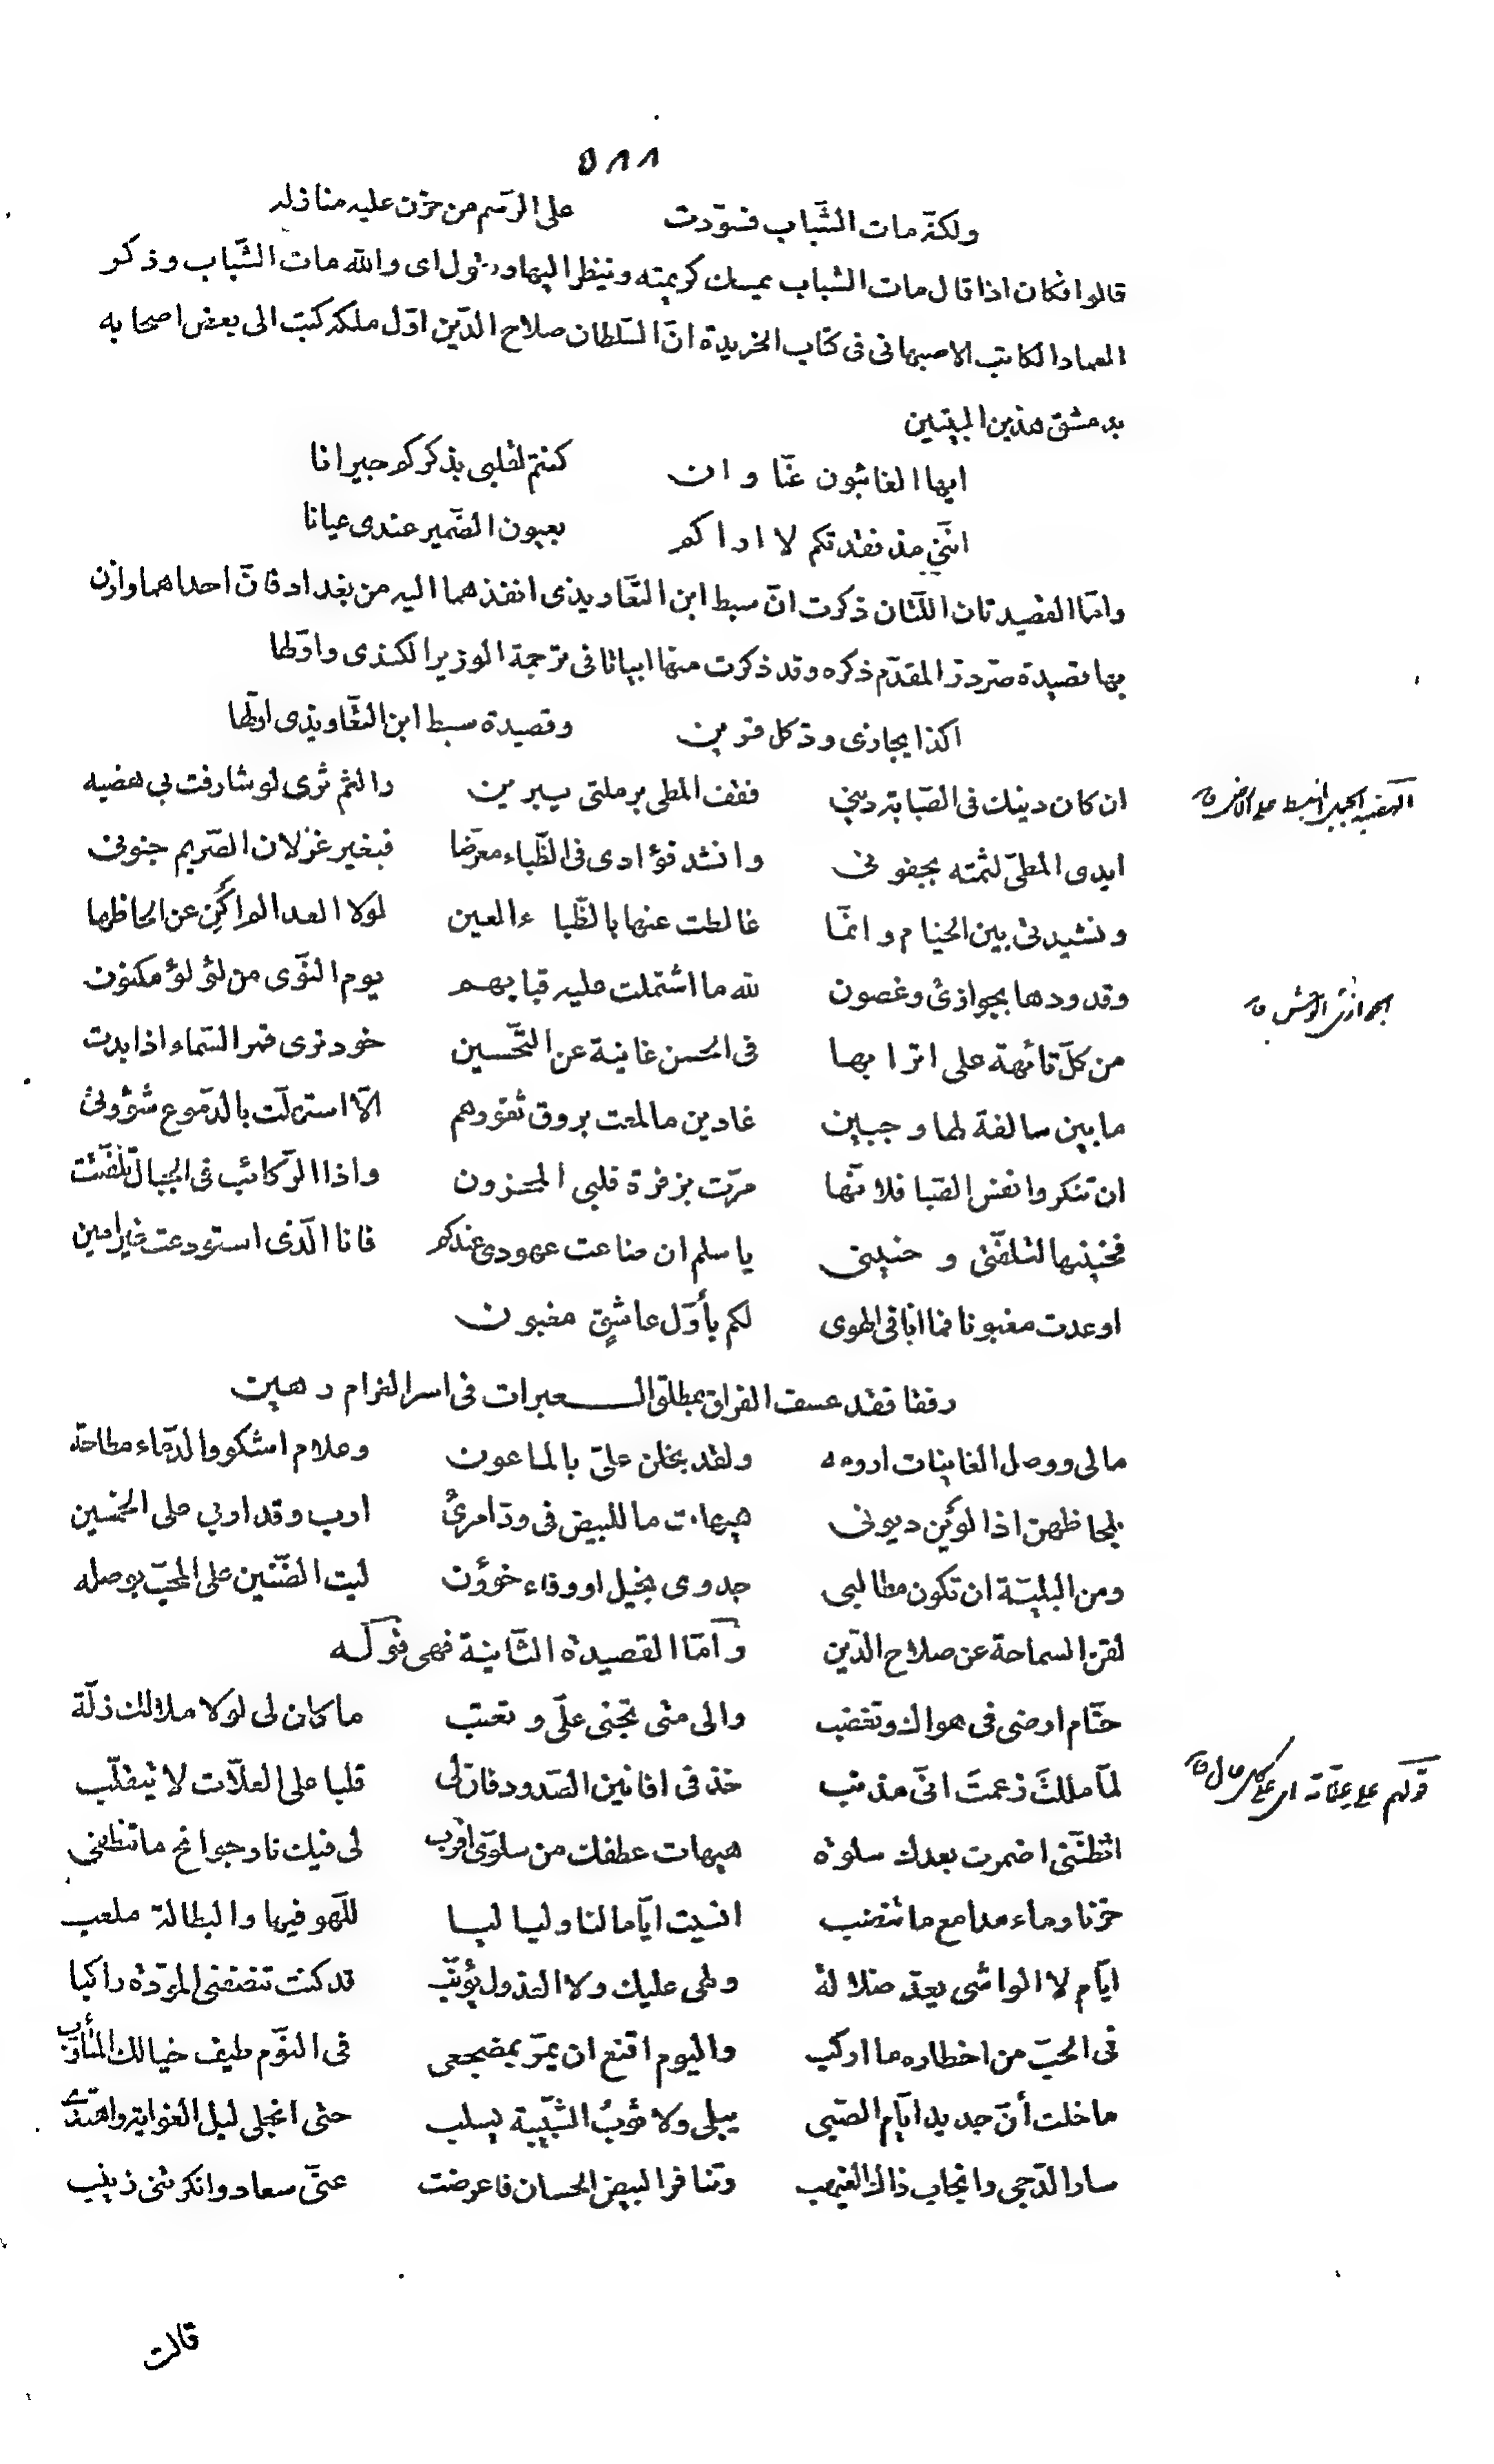 ٥٨٨
ولكنّه مات الشّباب فسوّدت على الرّسم من حزن عليه منازله
قالوا فكان اذا قال مات الشباب يمسك كريمته وينظر اليها ويقول اى والله مات الشّباب وذكر
العماد الكاتب الاصبهانى فى كتاب الخريدة انّ السّلطان صلاح الدّين اوّل ملكه كتب الى بعض اصحابه
بدمشق هذين البيتين
ايها الغائبون عنّا وان كنتم لقلبى بذكركم جيرانا
انّنى مذ فقدتكم لا اراكم بعيون الضّمير عندى عيانا
وامّا القصيدتان اللّتان ذكرت انّ سبط ابن التّعاويذى انفذهما اليه من بغداد فانّ احداهما وازن
بها قصيدة صرّدرّ المقدّم ذكره وقد ذكرت منها ابياتا فى ترجمة الوزير الكندى واوّلها
اكذا يجازى ودّ كل قرين وقصيدة سبط ابن التّعاويذى اوّلها
ان كان دينك فى الصّبابة دينى فقف المطى برملتى يبرين والثم ثرى لو شارفت بى هضبه
الهضبة الجبل المنبسط على الارض
ايدى المطىّ لثمته بجفونى وانشد فؤادى فى الظّباء معرّضا فبغير غزلان الصّريم جنونى
ونشيدتى بين الخيام وانّما غالطت عنها بالظّباء العين لولا العدا لم اكن عن الحاظها
وقدودها بجوازئ وغصون لله ما اشتملت عليه قبابهم يوم النّوى من لؤلؤ مكنون
الجوازئ الوحش
من كلّ تائهة على اترابها فى الحسن غانية عن التّحسين خود ترى قمر السّماء اذا بدت
ما بين سالفة لها وجبين غادين ما لمعت بروق ثغورهم الّا استهلّت بالدّموع شؤونى
ان تنكروا نفس الصّبا فلانّها مرّت بزفرة قلبى المحزون واذا الرّكائب فى الجبال تلفّتت
فحنينها لتلفّتى وحنينى يا سلم ان ضاعت عهودى عندكم فانا الّذى استودعت غير امين
او عدت مغبونا فما انا فى الهوى لكم بأوّل عاشقٍ مغبون
رفقا فقد عسف الفراق بمطلق العبرات فى اسر الغرام رهين
مالى ووصل الغانيات ارومه ولقد بخلن علىّ بالماعون وعلام اشكو والدّماء مطاحة
بلحاظهن اذا لوين ديونى هيهات ما للبيض فى ودّ امرئ ارب وقد اربى على الخمسين
ومن البليّة ان تكون مطالبى جدوى بخيل او وفاء خؤون ليت الضّنين على المحبّ بوصله
لقن السماحة عن صلاح الدّين وامّا القصيدة الثّانية فهى قوله
حتّام ارضى فى هواك وتغضب والى متى تجنى علىّ وتعتب ما كان لى لولا ملالك زلّة
لمّا مللتَ زعمتَ انّى مذنب خذ فى افانين الصّدود فانّ لى قلبا على العلّات لا يتقلّب
قولهم على علّاته اى على كل حال
اتظنّنى اضمرت بعدك سلوة هيهات عطفك من سلوّى اقرب لى فيك نار جوانح ما تنطفى
حزنا وماء مدامع ما تنضب انسيت ايّاما لنا ولياليا للّهو فيها والبطالة ملعب
ايّام لا الواشى يعدّ ضلالة ولهى عليك ولا العذول يؤنّب قد كنت تنصفنى المودّة راكبا
فى الحبّ من اخطاره ما اركب واليوم اقنع ان يمرّ بمضجعى فى النّوم طيف خيالك المتأوّب
ما خلت أنّ جديد ايّام الصّبى يبلى ولا ثوبُ الشّبيبة يسلب حتى انجلى ليل الغواية واهتدى
سار الدّجى وانجاب ذاك الغيهب وتنافر البيض الحسان فاعرضت عنّى سعاد وانكرتنى زينب
قالت